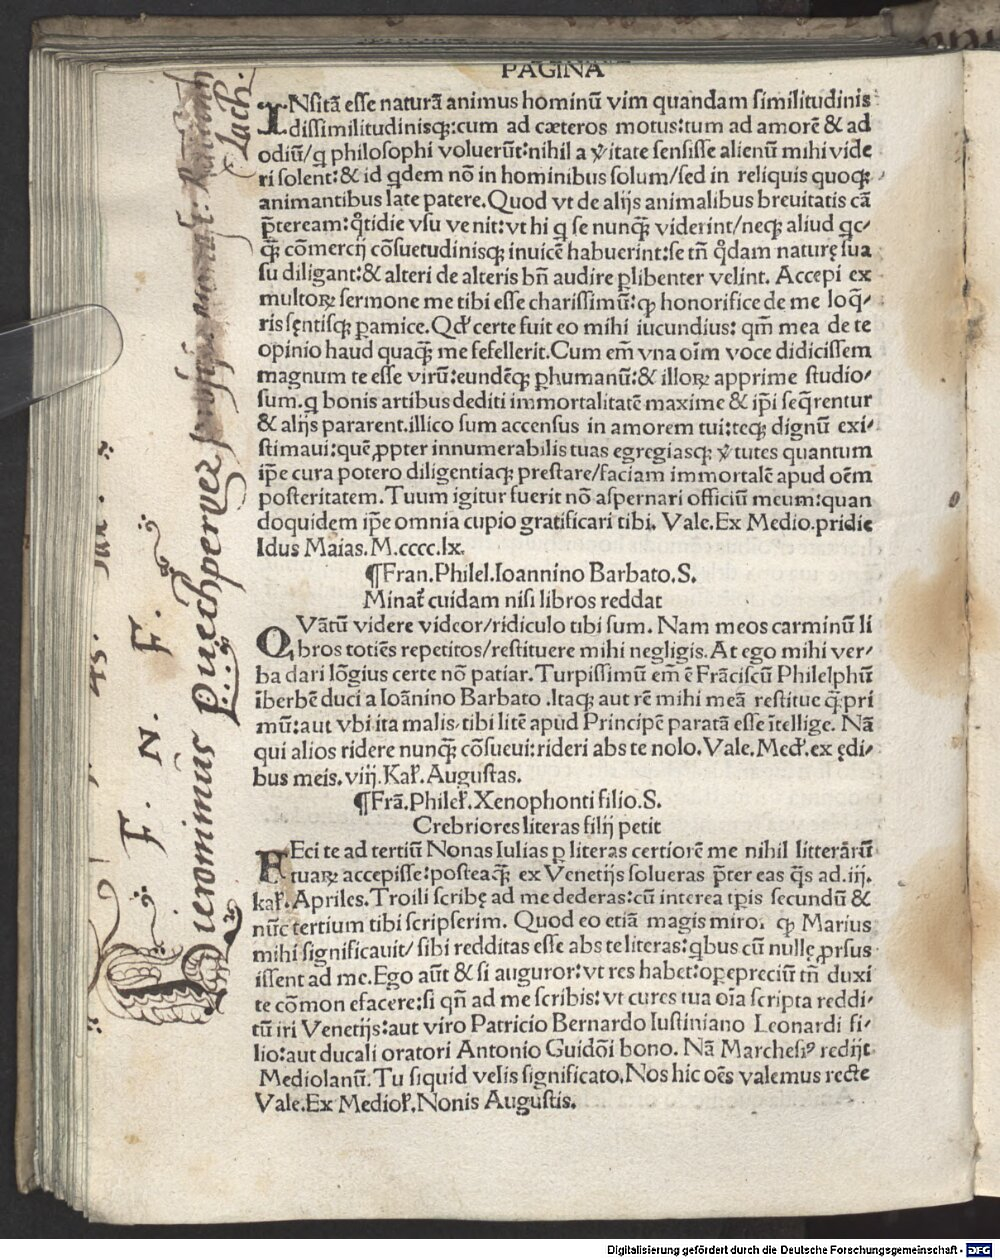 PAGINA
INsitā esse naturā animus hominū vim quandam similitudinis
dissimilitudinisqꝫ:cum ad cæteros motus:tum ad amorē & ad
odiū/ꝗ philosophi voluerūt:nihil a v̄itate sensisse alienū mihi vide
ri solent:& id ꝗdem nō in hominibus solum/sed in reliquis quoqꝫ
animantibus late patere.Quod vt de alijs animalibus breuitatis cā
p̄teream:qͦtidie vsu venit:vt hi ꝗ se nunqꝫ̄ viderint/neqꝫ aliud ꝗc⸗
qꝫ̄ cōmercij cōsuetudinisqꝫ inuicē habuerint:se tn̄ qͦdam naturę sua
su diligant:& alteri de alteris bn̄ audire ꝑlibenter velint. Accepi ex
multoꝝ sermone me tibi esse charissimū:ꝙ honorifice de me loq̄⸗
ris sętisqꝫ ꝑamice.Qd' certe fuit eo mihi iucundius: qm̄ mea de te
opinio haud quaqꝫ̄ me fefellerit.Cum em̄ vna oīm voce didicissem
magnum te esse virū:eundēqꝫ ꝑhumanū:& illoꝝ apprime studio⸗
sum.ꝗ bonis artibus dediti immortalitatē maxime & ip̄i seq̄rentur
& alijs pararent.illico sum accensus in amorem tui:teqꝫ dignū exi⸗
stimaui:quē ꝓpter innumerabilis tuas egregiasqꝫ v̄tutes quantum
ip̄e cura potero diligentiaqꝫ prestare/faciam immortalē apud oēm
posteritatem.Tuum igitur fuerit nō aspernari officiū meum:quan
doquidem ip̄e omnia cupio gratificari tibi. Vale.Ex Medio.pridie
Idus Maias.M.cccc.lx.
¶Fran.Philel.Ioannino Barbato.S.
Minat' cuidam nisi libros reddat
QVātū videre videor/ridiculo tibi sum. Nam meos carminū li
bros totiēs repetitos/restituere mihi negligis.At ego mihi ver⸗
ba dari lōgius certe nō patiar.Turpissimū em̄ ē Frāciscū Philelphū
īberbē duci a Ioānino Barbato .Itaqꝫ aut rē mihi meā restitue qꝫ̄ pri
mū:aut vbi ita malis,tibi litē apud Principē paratā esse ītellige. Nā
qui alios ridere nunqꝫ̄ cōsueui:rideri abs te nolo.Vale.Med'.ex ędi⸗
bus meis.viij.Kal'.Augustas.
¶Frā.Philel'.Xenophonti filio.S.
Crebriores literas filij petit
FEci te ad tertiū Nonas Iulias ꝑ literas certiorē me nihil litterārū
tuaꝝ accepisse:posteaqꝫ̄ ex Venetijs solueras p̄ter eas q̄s ad.iij.
kal'.Apriles.Troili scribę ad me dederas:cū interea tꝑis secundū &
nūc tertium tibi scripserim. Quod eo etiā magis miro. ꝙ Marius
mihi significauit/ sibi redditas esse abs te literas:ꝗbus cū nullę ꝓrsus
issent ad me.Ego aūt & si auguror:vt res habet:opepreciū tn̄ duxi
te cōmon efacere:si qn̄ ad me scribis:vt cures tua oīa scripta reddi⸗
tū iri Venetijs:aut viro Patricio Bernardo Iustiniano Leonardi fi⸗
lio:aut ducali oratori Antonio Guidōi bono. Nā Marchesiꝰ redijt
Mediolanū.Tu siquid velis significato.Nos hic oēs valemus recte
Vale.Ex Mediol'.Nonis Augustis.
Hieronimus Puechperger
F. N. F. F.
Digitalisierung gefördert durch die Deutsche Forschungsgemeinschaft - DFG